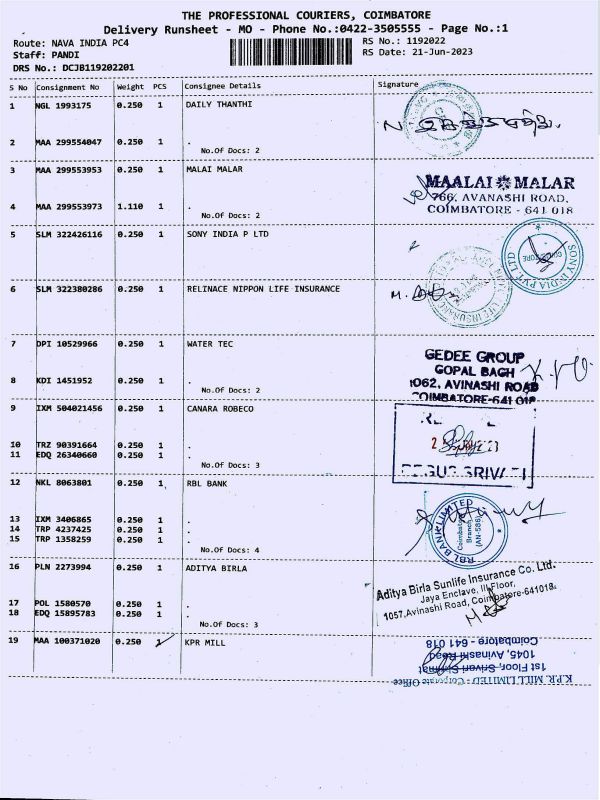 THE PROFESSIONAL COURIERS, COIMBATORE
Delivery Runsheet - MO - Phone No.:0422-3505555 - Page No.:1
Route: NAVA INDIA PC4
RS No.: 1192022
Staff: PANDI
RS Date: 21-Jun-2023
DRS No.: DCJB119202201
S No Consignment No Weight PCS Consignee Details Signature
1 NGL 1993175 0.250 1 DAILY THANTHI
2 MAA 299554047 0.250 1 .
No.Of Docs: 2
3 MAA 299553953 0.250 1 MALAI MALAR
MAALAI MALAR
766, AVANASHI ROAD,
COIMBATORE - 641 018
4 MAA 299553973 1.110 1 .
No.Of Docs: 2
5 SLM 322426116 0.250 1 SONY INDIA P LTD
SONY INDIA PVT. LTD
6 SLM 322380286 0.250 1 RELINACE NIPPON LIFE INSURANCE
7 DPI 10529966 0.250 1 WATER TEC
GEDEE GROUP
GOPAL BAGH
1062, AVINASHI ROAD
COIMBATORE-641 018
8 KDI 1451952 0.250 1 .
No.Of Docs: 2
9 IXM 504021456 0.250 1 CANARA ROBECO
10 TRZ 90391664 0.250 1 .
11 EDQ 26340660 0.250 1 .
No.Of Docs: 3
12 NKL 8063801 0.250 1 RBL BANK
RBL BANK LIMITED
Coimbatore
Branch
(AN-586)
13 IXM 3406865 0.250 1 .
14 TRP 4237425 0.250 1 .
15 TRP 1358259 0.250 1 .
No.Of Docs: 4
16 PLN 2273994 0.250 1 ADITYA BIRLA
Aditya Birla Sunlife Insurance Co. Ltd.
Jaya Enclave, III Floor,
1057,Avinashi Road, Coimbatore-641018.
17 POL 1580570 0.250 1 .
18 EDQ 15895783 0.250 1 .
No.Of Docs: 3
19 MAA 100371020 0.250 1 KPR MILL
K.P.R. MILL LIMITED - Corporate Office
1st Floor, Srivari Shrimat
1045, Avinashi Road
Coimbatore - 641 018